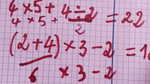 4×5+4÷2=22
4×5+ 2
(2+4)×3-2=1
6 ×3-2